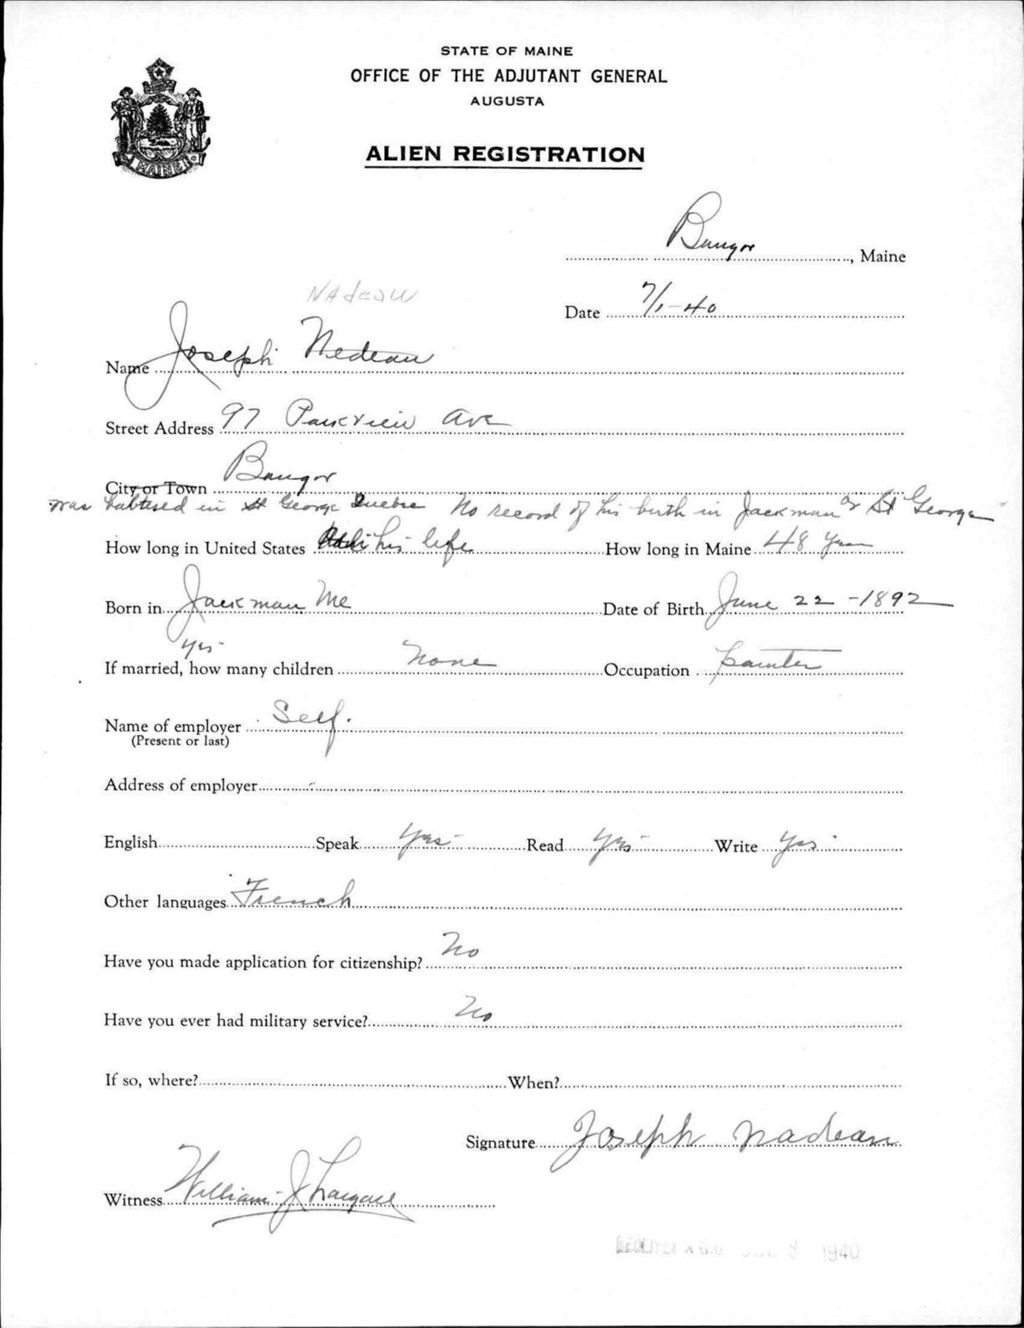 STATE OF MAINE
OFFICE OF THE ADJUTANT GENERAL
AUGUSTA
ALIEN REGISTRATION
MAINE
Bangor, Maine
Date 7/1-40
Nadeau
Name Joseph Nedeau
Street Address 97 Parkview Ave
City or Town Bangor
was babtised in St George Quebec No record of his birth in Jackman or St George
How long in United States his life How long in Maine 48 Yrs
Born in Jackman Me Date of Birth June 22-1892
Yes
If married, how many children None Occupation painter
Name of employer Self.
(Present or last)
Address of employer -
English Speak Yes- Read Yes- Write Yes-
Other languages French
Have you made application for citizenship? No
Have you ever had military service? No
If so, where? When?
Signature Joseph Nadeau
Witness William J
1940